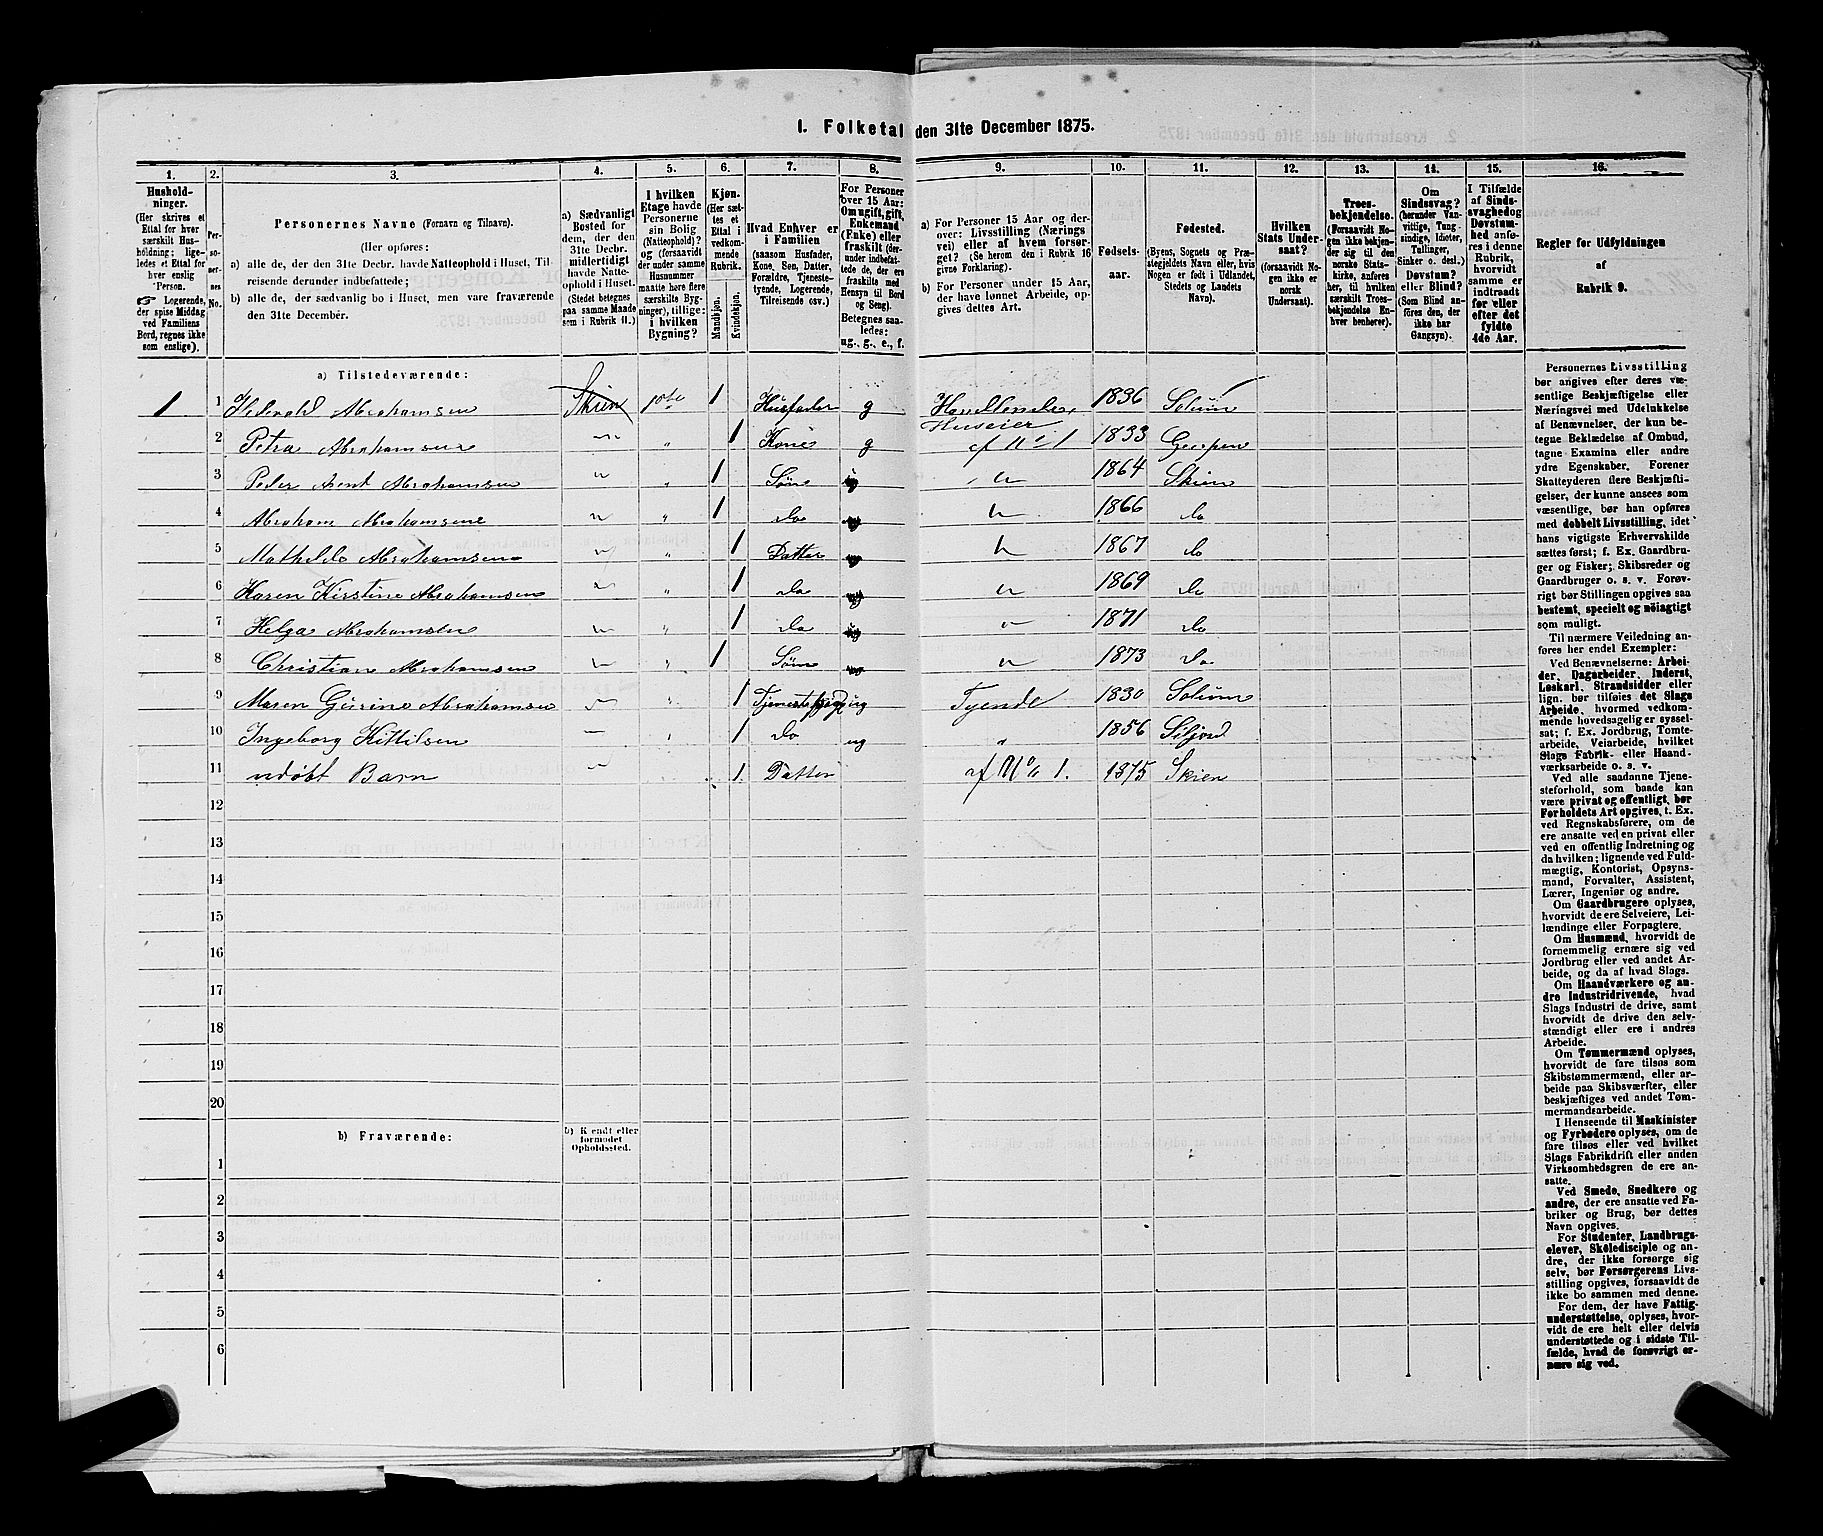 I. Folketal den 31te December 1875.
1. 2. 3. 4. 5. 6. 7. 8. 9. 10. 11. 12. 13. 14. 15. 16.
Hushold-
ninger.
(Her skrives et
Ettal for hver
særskilt Hus-
holdning; lige-
ledes et Ettal for
hver enslig
Person.
☞ Logerende,
der spise Middag
ved Familiens
Bord, regnes ikke
som enslige).
Per-
so-
ner-
nes
No.
Personernes Navne (Fornavn og Tilnavn).
(Her opføres:
a) alle de, der den 31te Decbr. havde Natteophold i Huset, Til-
reisende derunder indbefattede;
b) alle de, der sædvanlig bo i Huset, men vare fraværende
den 31te December.
a) Sædvanligt
Bosted for
dem, der den
31te Decbr.
midlertidigt
havde Natte-
ophold i Huset.
(Stedet betegnes
paa samme Maade
som i Rubrik 11.)
I hvilken
Etage havde
Personerne
sin Bolig
(Natteophold)?
og (forsaavidt
der under samme
Husnummer
maatte høre flere
særskilte Byg-
ninger), tillige:
i hvilken
Bygning?
Kjøn.
(Her sæt-
tes et
Ettal i
vedkom-
mende
Rubrik.
Mandkjøn.
Kvindekjøn.
Hvad Enhver er
i Familien
(saasom Husfader,
Kone, Søn, Datter,
Forældre, Tjeneste-
tyende, Logerende,
Tilreisende osv.)
For Personer
over 15 Aar:
Om ugift, gift,
Enkemand
(Enke) eller
fraskilt (der-
under indbefat-
tede de, der ere
fraskilte med
Hensyn til Bord
og Seng).
Betegnes saa-
ledes:
ug., g., e., f.
a) For Personer 15 Aar og der-
over: Livsstilling (Nærings-
vei) eller af hvem forsør-
get? (Se herom den i Rubrik 16
givne Forklaring).
b) For Personer under 15 Aar,
der have lønnet Arbeide, op-
gives dettes Art.
Fødsels-
aar.
Fødested.
(Byens, Sognets og Præ-
stegjeldets Navn eller, hvis
Nogen er født i Udlandet,
Stedets og Landets
Navn).
Hvilken
Stats Under-
saat?
(forsaavidt No-
gen ikke er
norsk
Undersaat).
Troes-
bekjendelse.
(Forsaavidt No-
gen ikke bekjen-
der sig til den
norske Stats-
kirke, anføres
her, til hvilken
særskilt Troes-
bekjendelse En-
hver henhører).
Om
Sindssvag?
(herunder Van-
vittige, Tung-
sindige, Idioter,
Tullinger,
Sinker o. desl.)
Døvstum?
eller Blind?
(Som Blind an-
føres den, der
ikke har
Gangsyn).
I Tilfælde
af Sinds-
svaghed og
Døvstum-
hed anfø-
res i denne
Rubrik,
hvorvidt
samme er
indtraadt
før eller
efter det
fyldte
4de Aar.
Regler for Udfyldningen
af
Rubrik 9.
a) Tilstedeværende:
1 1 Abrahamsen Skien 1ste 1 Husfader g 1836 Solum
Huseier
2 Petra Abrahamsen " 1 Kone g af No 1 1833 Gjerpen
3 Peder Arent Abrahamsen " 1 Søn " 1864 Skien
4 Abraham Abrahamsen " 1 do " 1866 do
5 Mathilde Abrahamsen " 1 Datter " 1867 do
6 Karen Kirstine Abrahamsen " 1 do " 1869 do
7 Helga Abrahamsen " 1 do " 1871 do
8 Christian Abrahamsen " 1 Søn " 1873 do
9 Maren Abrahamsen " 1 ug Tyende 1830 Solum
10 Ingeborg Kittilsen " 1 do ug " 1856 Siljord
11 udøbt Barn " 1 Datter af No 1. 1875 Skien
12
13
14
15
16
17
18
19
20
b) Fraværende:
b) Kjendt eller
formodet
Opholdssted.
1
2
3
4
5
6
Personernes Livsstilling
bør angives efter deres væ-
sentlige Beskjæftigelse eller
Næringsvei med Udelukkelse
af Benævnelser, der kun be-
tegne Beklædelse af Ombud,
tagne Examina eller andre
ydre Egenskaber. Forener
Skatteyderen flere Beskjæfti-
gelser, der kunne ansees som
væsentlige, bør han opføres
med dobbelt Livsstilling, idet
hans vigtigste Erhvervskilde
sættes først; f. Ex. Gaardbru-
ger og Fisker; Skibsreder og
Gaardbruger o. s. v. Forøv-
rigt bør Stillingen opgives saa
bestemt, specielt og nøiagtigt
som muligt.
Til nærmere Veiledning an-
føres her endel Exempler:
Ved Benævnelserne: Arbei-
der, Dagarbeider, Inderst,
Løskarl, Strandsidder eller
lign. bør tilføies det Slags
Arbeide, hvormed vedkom-
mende hovedsagelig er syssel-
sat; f. Ex. Jordbrug, Tomte-
arbeide, Veiarbeide, hvilket
Slags Fabrik- eller Haand-
værksarbeide o. s. v.
Ved alle saadanne Tjene-
steforhold, som baade kan
være privat og offentligt, bør
Forholdets Art opgives, t. Ex.
ved Regnskabsførere, om de
ere ansatte ved en privat eller
ved en offentlig Indretning og
da hvilken; lignende ved Fuld-
mægtig, Kontorist, Opsyns-
mand, Forvalter, Assistent,
Lærer, Ingeniør og andre.
Om Gaardbrugere oplyses,
hvorvidt de ere Selveiere, Lei-
lændinge eller Forpagtere.
Om Husmænd, hvorvidt de
fornemmelig ernære sig ved
Jordbrug eller ved andet Ar-
beide, og da af hvad Slags.
Om Haandværkere og an-
dre Industridrivende, hvad
Slags Industri de drive, samt
hvorvidt de drive den selv-
stændigt eller ere i andres
Arbeide.
Om Tømmermænd oplyses,
hvorvidt de fare tilsøs som
Skibstømmermænd, eller ar-
beide paa Skibsværfter, eller
beskjæftiges ved andet Tøm-
mermandsarbeide.
I Henseende til Maskinister
og Fyrbødere oplyses, om de
fare tilsøs eller ved hvilket
Slags Fabrikdrift eller anden
Virksomhedsgren de ere an-
satte.
Ved Smede, Snedkere og
andre, der ere ansatte ved Fa-
briker og Brug, bør dettes
Navn opgives.
For Studenter, Landbrugs-
elever, Skoledisciple og an-
dre, der ikke forsørge sig
selv, bør Forsørgerens Livs-
stilling opgives, forsaavidt de
ikke bo sammen med denne.
For dem, der have Fattig-
understøttelse, oplyses, hvor-
vidt de ere helt eller delvis
understøttede og i sidste Til-
fælde, hvad de forøvrigt er-
nære sig ved.